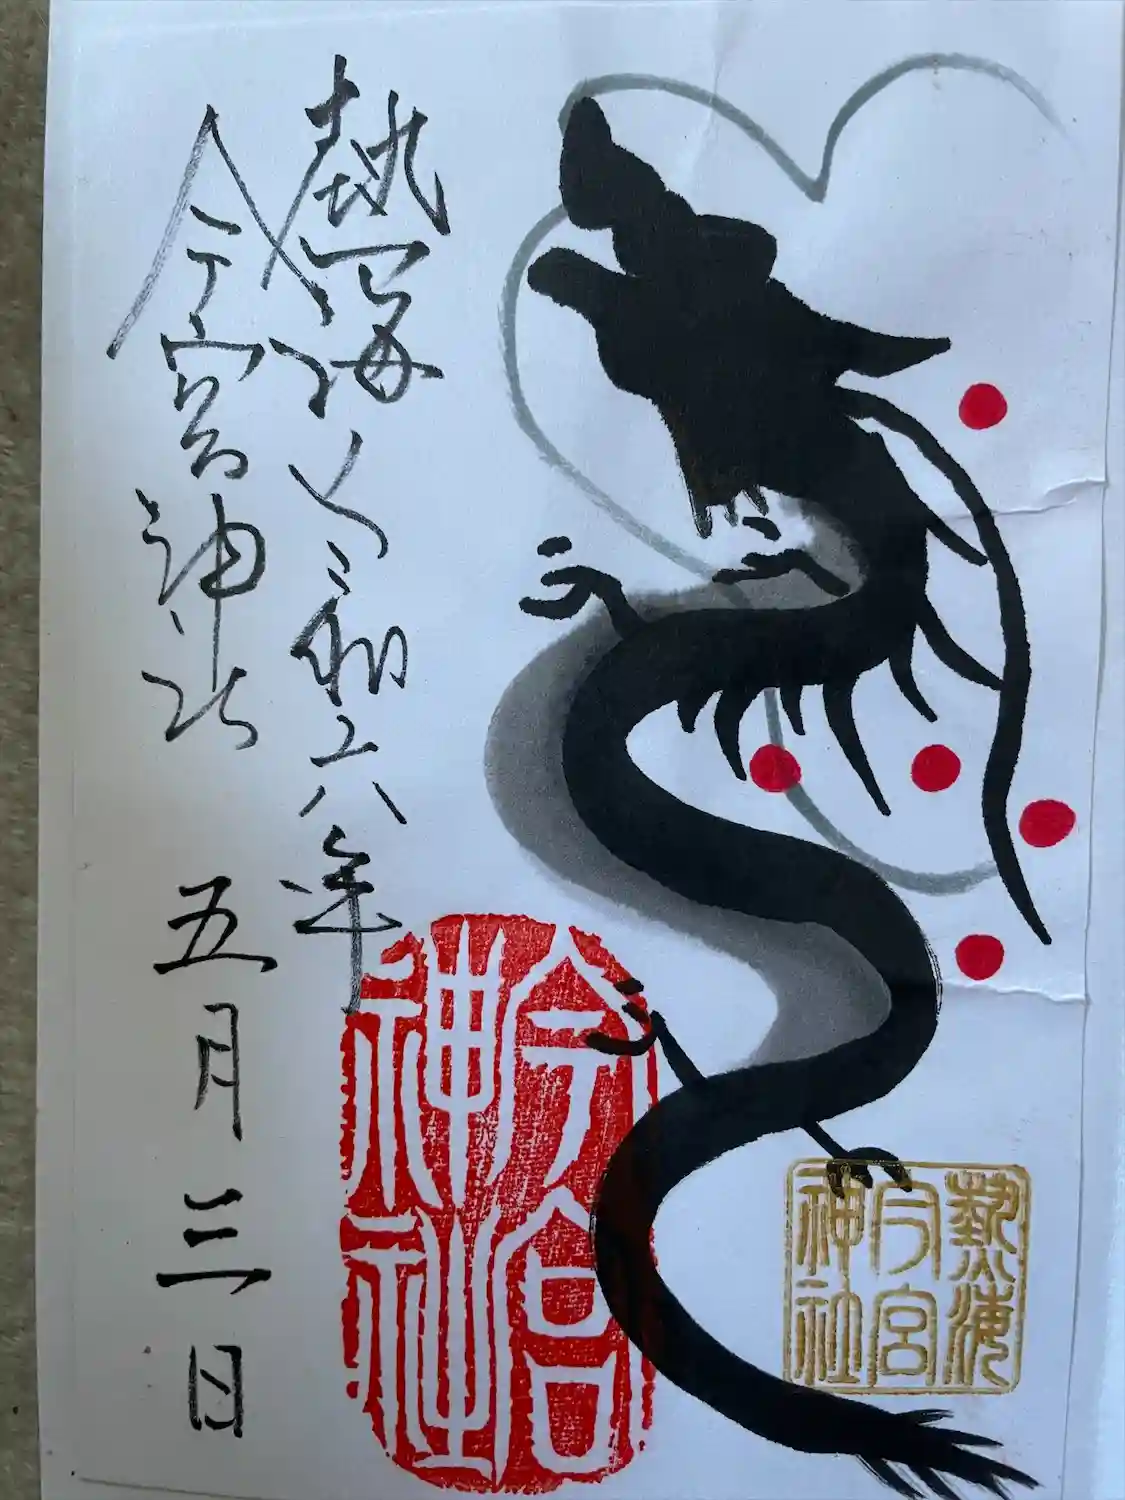 熱海 令和六年
今宮神社 五月三日
今宮
神社
熱海
今宮
神社